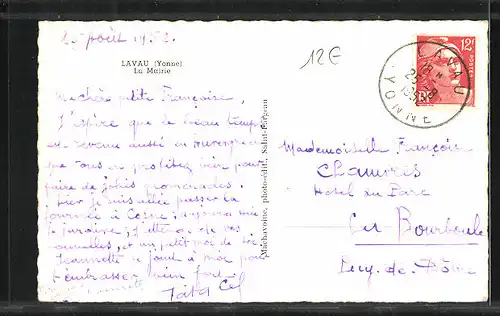 25 août 1952.
LAVAU (Yonne)
La Mairie
12€
12F
LAVAU
YONNE
Ma chère petite Françoise,
J'espère que le beau temps
est revenu aussi en Auvergne
que vous en profitez bien pour
faire de jolies promenades.
Hier je suis allée passer la
journée à Cosne; aujourd'hui
je jardine; j'attends de vos
nouvelles, et un petit mot de
Jeannette se joint à moi pour
t'embrasser bien fort.
Tata
Machavoine, photo-édit., Saint-Fargeau
Mademoiselle Françoise
Hotel du Parc
La Bourboule
Puy-de-Dôme